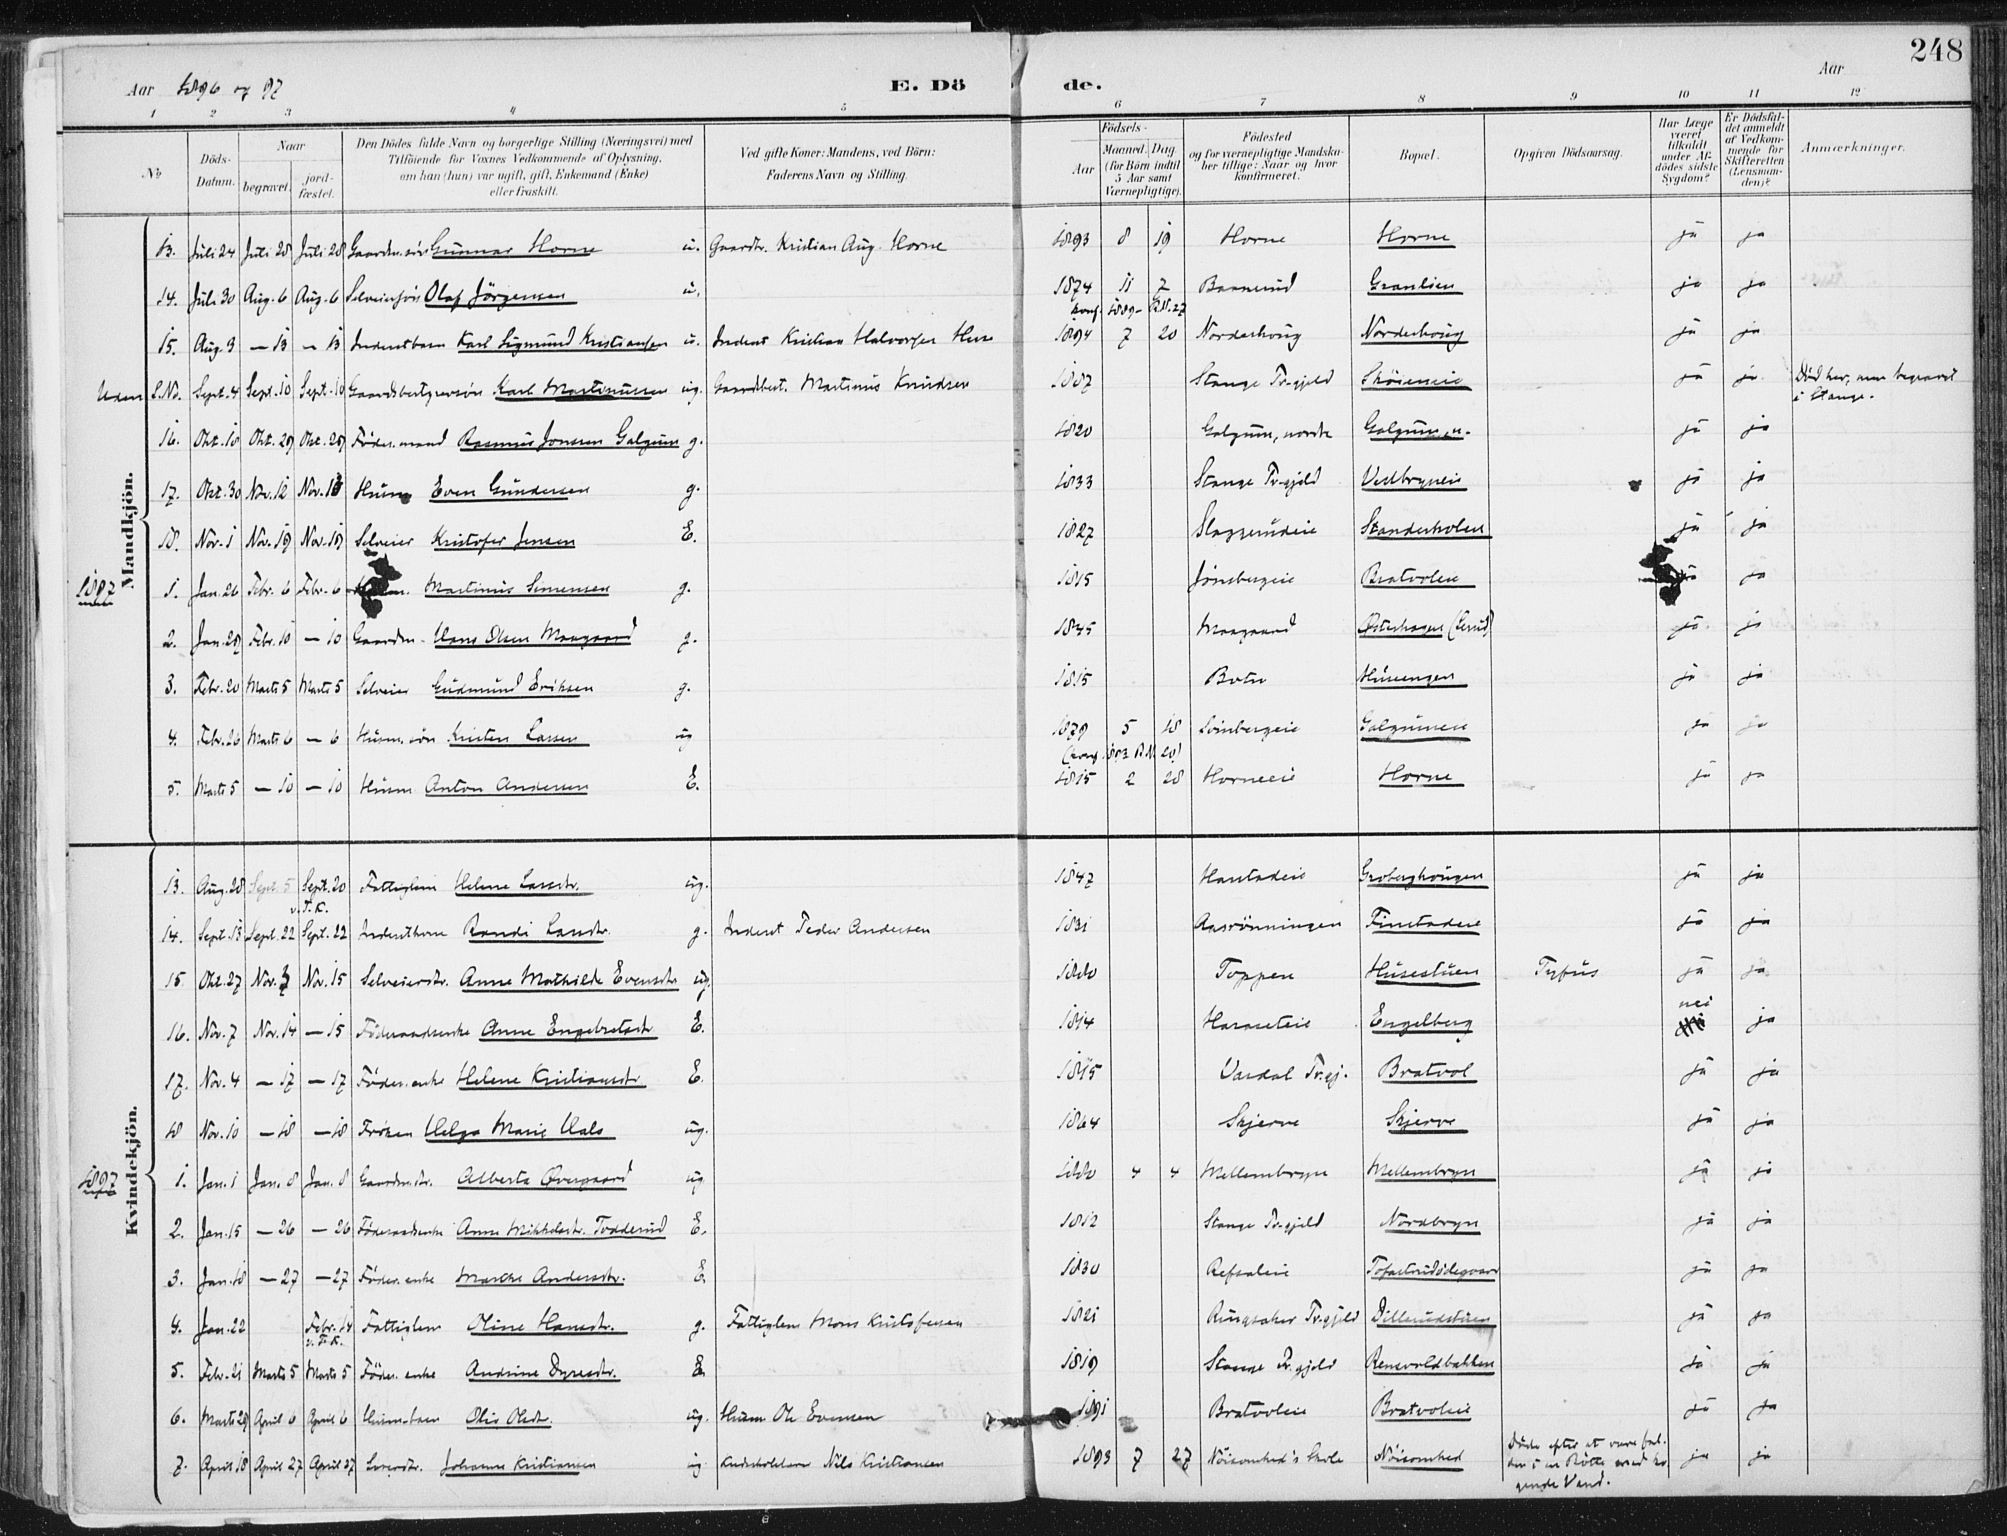 248
Aar 1896 og 97
E. Dö
de.
Aar
1 2 3 4 5 6 7 8 9 10 11 12
No
Döds-Datum.
Naar
begravet.
jordfæstet.
Den Dödes fulde Navn og borgerlige Stilling (Næringsvei) med
Tilföiende for Voxnes Vedkommende af Oplysning,
om han (hun) var ugift, gift, Enkemand (Enke)
eller fraskilt.
Ved gifte Koner: Mandens, ved Börn:
Faderens Navn og Stilling.
Födsels-
Aar
Maaned. Dag
(for Börn indtil
5 Aar samt
Værnepligtige).
Födested
og for værnepligtige Mandskaber tillige: Naar og hvor
konfirmeret.
Bopæl.
Opgiven Dödsaarsag.
Har Læge
været
tilkaldt
under Afdödes sidste
Sygdom?
Er Dödsfaldet anmeldt
af Vedkommende for
Skifteretten
(Lensmanden)?
Anmærkninger.
Mandkjön.
13. Juli 24 Juli 28 Juli 28 Gaardm. sön Gunnar Horne u. Gaardbr. Kristian Aug. Horne 1893 8 19 Horne Horne ja ja
14. Juli 30 Aug. 6 Aug. 6 Selveiersön Olaf Jörgensen u. 1874 11 7 Granlien ja ja
konf. 1889
15. Aug. 3 — 13 — 13 Inderstbarn Karl Sigmund Kristiansen u. Inderst Kristian Halvorsen 1894 7 20 Norderhoug Norderhoug ja ja
Uden S.No. Sept. 4 Sept. 10 Sept. 10 Karl Martinussen ug. Gaardbest. Martinus Knudsen 1887 Stange Pr.gjeld ja ja Död her, men begravet
i Stange.
16. Okt. 18 Okt. 29 Okt. 29 Föder. mand Rasmus Jonsen Galgum g. 1820 Galgum, nordre ja ja
17. Okt. 30 Nov. 12 Nov. 12 Husm. Even Gundersen g. 1833 Stange Pr.gjeld Vestbryneie ja ja
18. Nov. 1 Nov. 19 Nov. 19 Selveier Kristofer Jensen E. 1827 ja ja
1897
1. Jan. 26 Febr. 6 Febr. 6 Martinus Simensen g. 1815 Jönsbergeie Bratvoleie ja
2. Jan. 29 Febr. 10 — 10 Gaardm. Hans Olsen Maagaard g. 1845 Maagaard ja ja
3. Febr. 20 Marts 5 Marts 5 Selveier Gudmund Eriksen g. 1815 ja ja
4. Febr. 26 Marts 6 — 6 Husm. sön Kristen Larsen ug 1879 5 18 ja ja
5. Marts 5 — 10 — 10 Husm Anton Andersen E. 1815 2 28 Horneeie Horne ja ja
Kvindekjön.
13. Aug. 28 Sept. 5 Sept. 20 Fattiglem Helene Larsdtr. ug. 1847 ja ja
v. F.K.
14. Sept. 13 Sept. 22 Sept. 22 Inderstkone Randi Larsdtr. g. Inderst Peder Andersen 1831 Aasrönningen Finstadeie ja ja
15. Okt. 27 Nov. 7 Nov. 15 Selveierdtr. Anne Mathilde Evensdtr. ug. 1880 Toppen Husestuen Tyfus ja ja
16. Nov. 7 Nov. 14 — 15 Föderaadsenke Anne Engebretsdtr. E. 1814 Engelberg nei ja
17. Nov. 4 — 17 — 17 Föder. enke Helene Kristiansdtr. E. 1815 Vardal Pr.gj. Bratvol ja ja
18 Nov. 10 — 18 — 18 Fröken Helga Marie Hals ug. 1864 Skjerve Skjerve ja ja
1897
1. Jan. 1 Jan. 8 Jan. 8 Gaardm.dtr. Alberta Övergaard ug 1880 4 4 Mellembryn Mellembryn ja ja
2. Jan. 15 — 26 — 26 Föderaadsenke Anne Mikkelsdtr. Todderud E. 1812 Stange Pr.gjeld Nordbryn ja ja
3. Jan. 18 — 27 — 27 Föder. enke Marthe Andersdtr. E. 1830 Refsaleie ja ja
4. Jan. 22 Febr. 14 Fattiglem Oline Hansdtr. g. Fattiglem Mons Kristofersen 1821 Ringsaker Pr.gjeld Dillerudstuen ja ja
v. F.K.
5. Febr. 21 Marts 5 Marts 5 Föder. enke Andrine Dyresdtr. E. 1819 Stange Pr.gjeld Rensvoldbakken ja ja
6. Marts 29 April 6 April 6 Husm. barn Olis Olsdtr. ug. Husm Ole Evensen 1891 Bratvoleie Bratvoleie ja ja
7. April 18 April 27 April 27 Johanne Kristiansen ug Nils Kristiansen 1893 7 27 Nöisomhed's Skole Nöisomhed Döde efter at være faldен i en Bötte med kogende Vand. ja ja